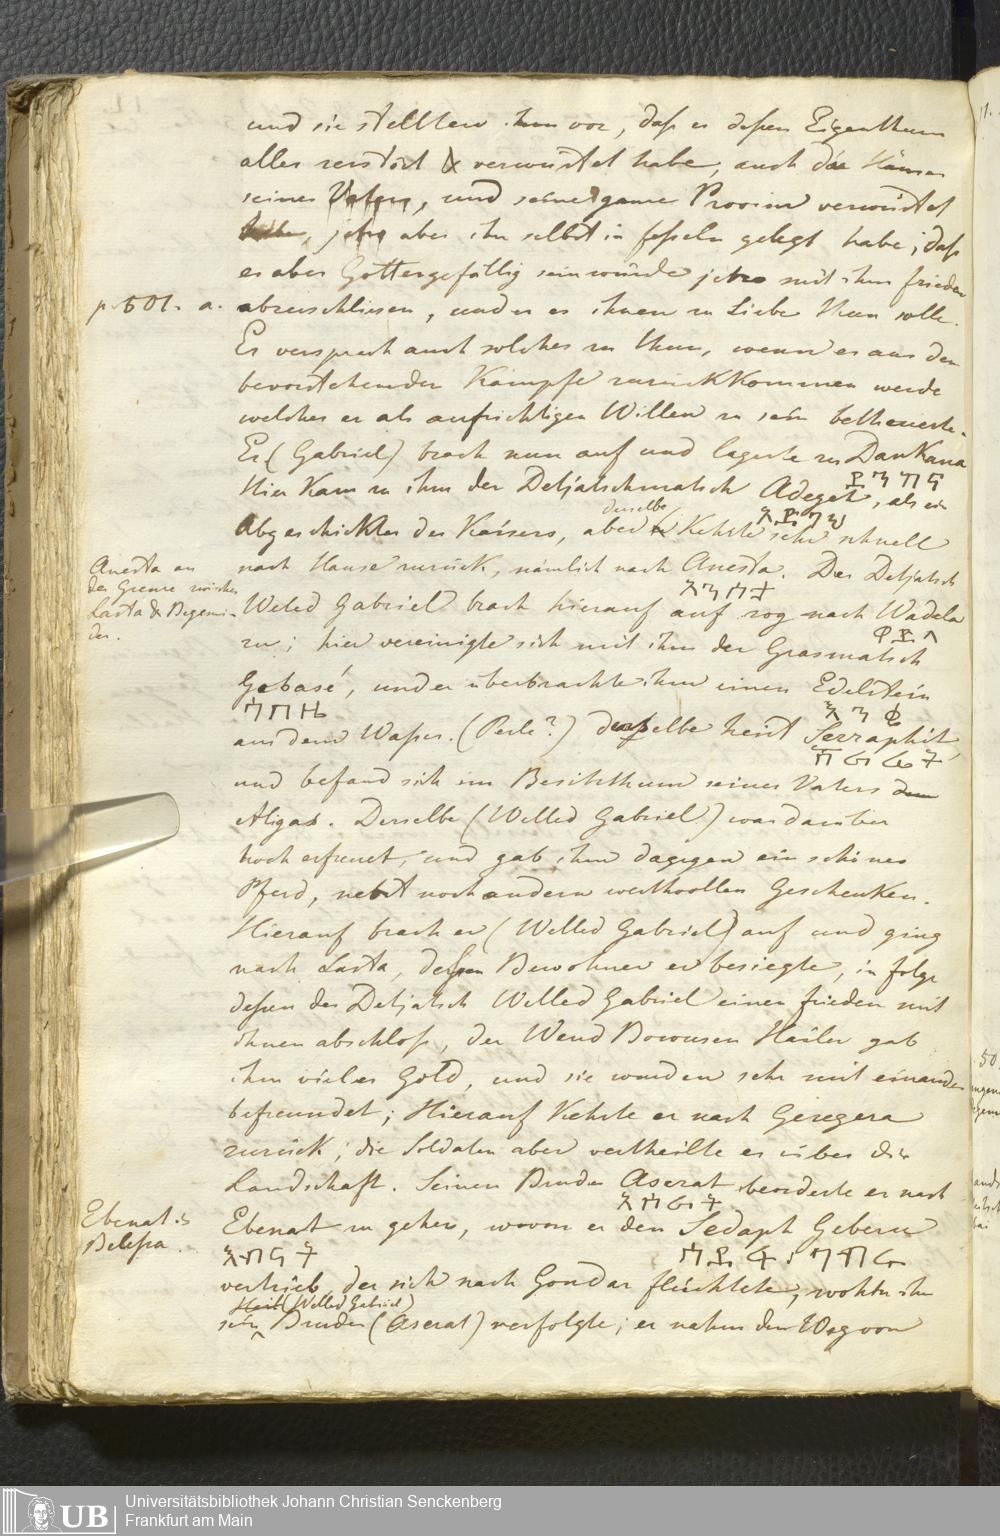 und sie stellten ihm vor, daß er deßen Eigenthum
alles zerstört & verwüstet habe, auch die Häuser
seines Vaters, und seine ganze Provinz verwüstet
habe, jetzo aber ihn selbst in feßeln gelegt habe; daß
er aber Gottergefällig sein würde jetzo mit ihm frieden
p. 501. a. abzuschliesen, und er es ihnen zu Liebe thun solle.
Er versprach auch solches zu thun, wenn er aus dem
bevorstehenden Kampfe zurückkommen werde
welches er als aufrichtigen Willen zu sein betheuerte.
Er (Gabriel) brach nun auf und lagerte zu Dankana
Hier kam zu ihm der Detjatschmatsch Adeget, als ein
derselbe
Abgeschickter des Kaisers, aber kehrte sehr schnell
nach Hause zurück, nämlich nach Anesta. Der Detjatsch
Anesta an
der Grenze zwischen
Lasta & Begemi-
der.
Weled Gabriel brach hierauf auf zog nach Wadela
ዋደላ
zu; hier vereinigte sich mit ihm der Grasmatsch
Gebasé, und er überbrachte ihm einen Edelstein
aus dem Waßer. (Perle?) derselbe heist Serraphit,
und befand sich im Besitzthum seines Vaters dem
Aligas. Derselbe (Welled Gabriel) war darüber
hoch erfreut, und gab ihm dagegen ein schönes
Pferd, nebst noch andern werthvollen Geschenken.
Hierauf brach er (Welled Gabriel) auf und ging
nach Lasta, deßen Bewohner er besiegte, in folge
deßen der Detjatsch Welled Gabriel einen frieden mit
ihnen abschloß, der Wend Bowusen Hailu gab
ihm vieles Gold, und sie wurden sehr mit einander
befreundet; Hierauf kehrte er nach Geregera
zurück; die Soldaten aber vertheilte er über die
Landschaft. Seinen Bruder Aserat beorderte er nach
አሰራት
Ebenat &
Beleßa.
Ebenat zu gehen, wovon er den Sedaph Geberu
እብናት
vertrieb, der sich nach Gondar flüchtete, wohin ihn
(Welled Gabriel)
sein Bruder (Aserat) verfolgte; er nahm den Weg von
Universitätsbibliothek Johann Christian Senckenberg
Frankfurt am Main
UB